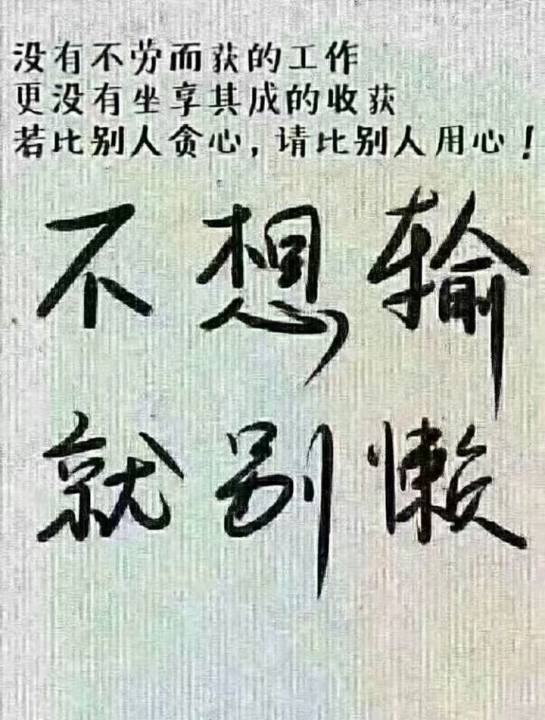 没有不劳而获的工作
更没有坐享其成的收获
若比别人贪心，请比别人用心！
不想输
就别懒